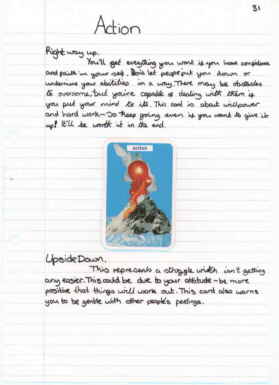 31
Action
Right way up.
You'll get everything you want is you have confidence
and faith in your self. Don't let people put you down or
undermine your abilities in a way. There may be obstacles
to overcome, but you're capable of dealing with them if
you put your mind to it. This card is about willpower
and hard work - So keep going even is you want to give it
up! It'll be worth it in the end.
ACTION
Upside Down.
This represents a struggle which isn't getting
any easier. This could be due to your attitude - be more
positive that things will work out. This card also warns
you to be gentle with other people's feelings.